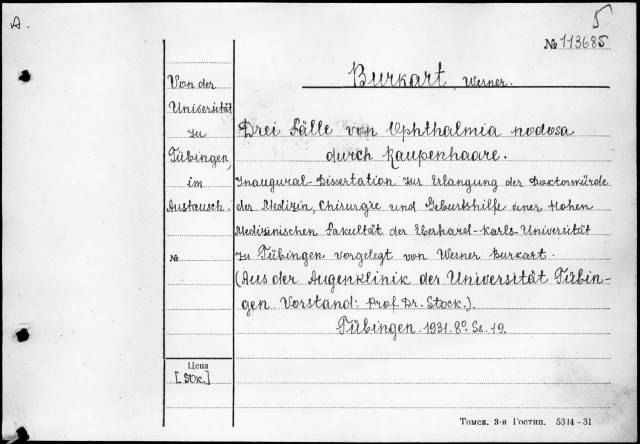 A.
5
№ 113685
Burkart, Werner.
Von der
Universität
zu
Tübingen,
im
Austausch.
№
Drei Fälle von Ophthalmia nodosa
durch Raupenhaare.
Inaugural-Dissertation zur Erlangung der Doktorwürde
der Medizin, Chirurgie und Geburtshilfe einer Hohen
Medizinischen Fakultät der Eberhard-Karls-Universität
zu Tübingen vorgelegt von Werner Burkart.
(Aus der Augenklinik der Universität Tübin-
gen. Vorstand: Prof. Dr. Stock.).
Tübingen. 1931. 8°. Ss. 19.
Цена
Томск. 3-я Гостип. 5314-31